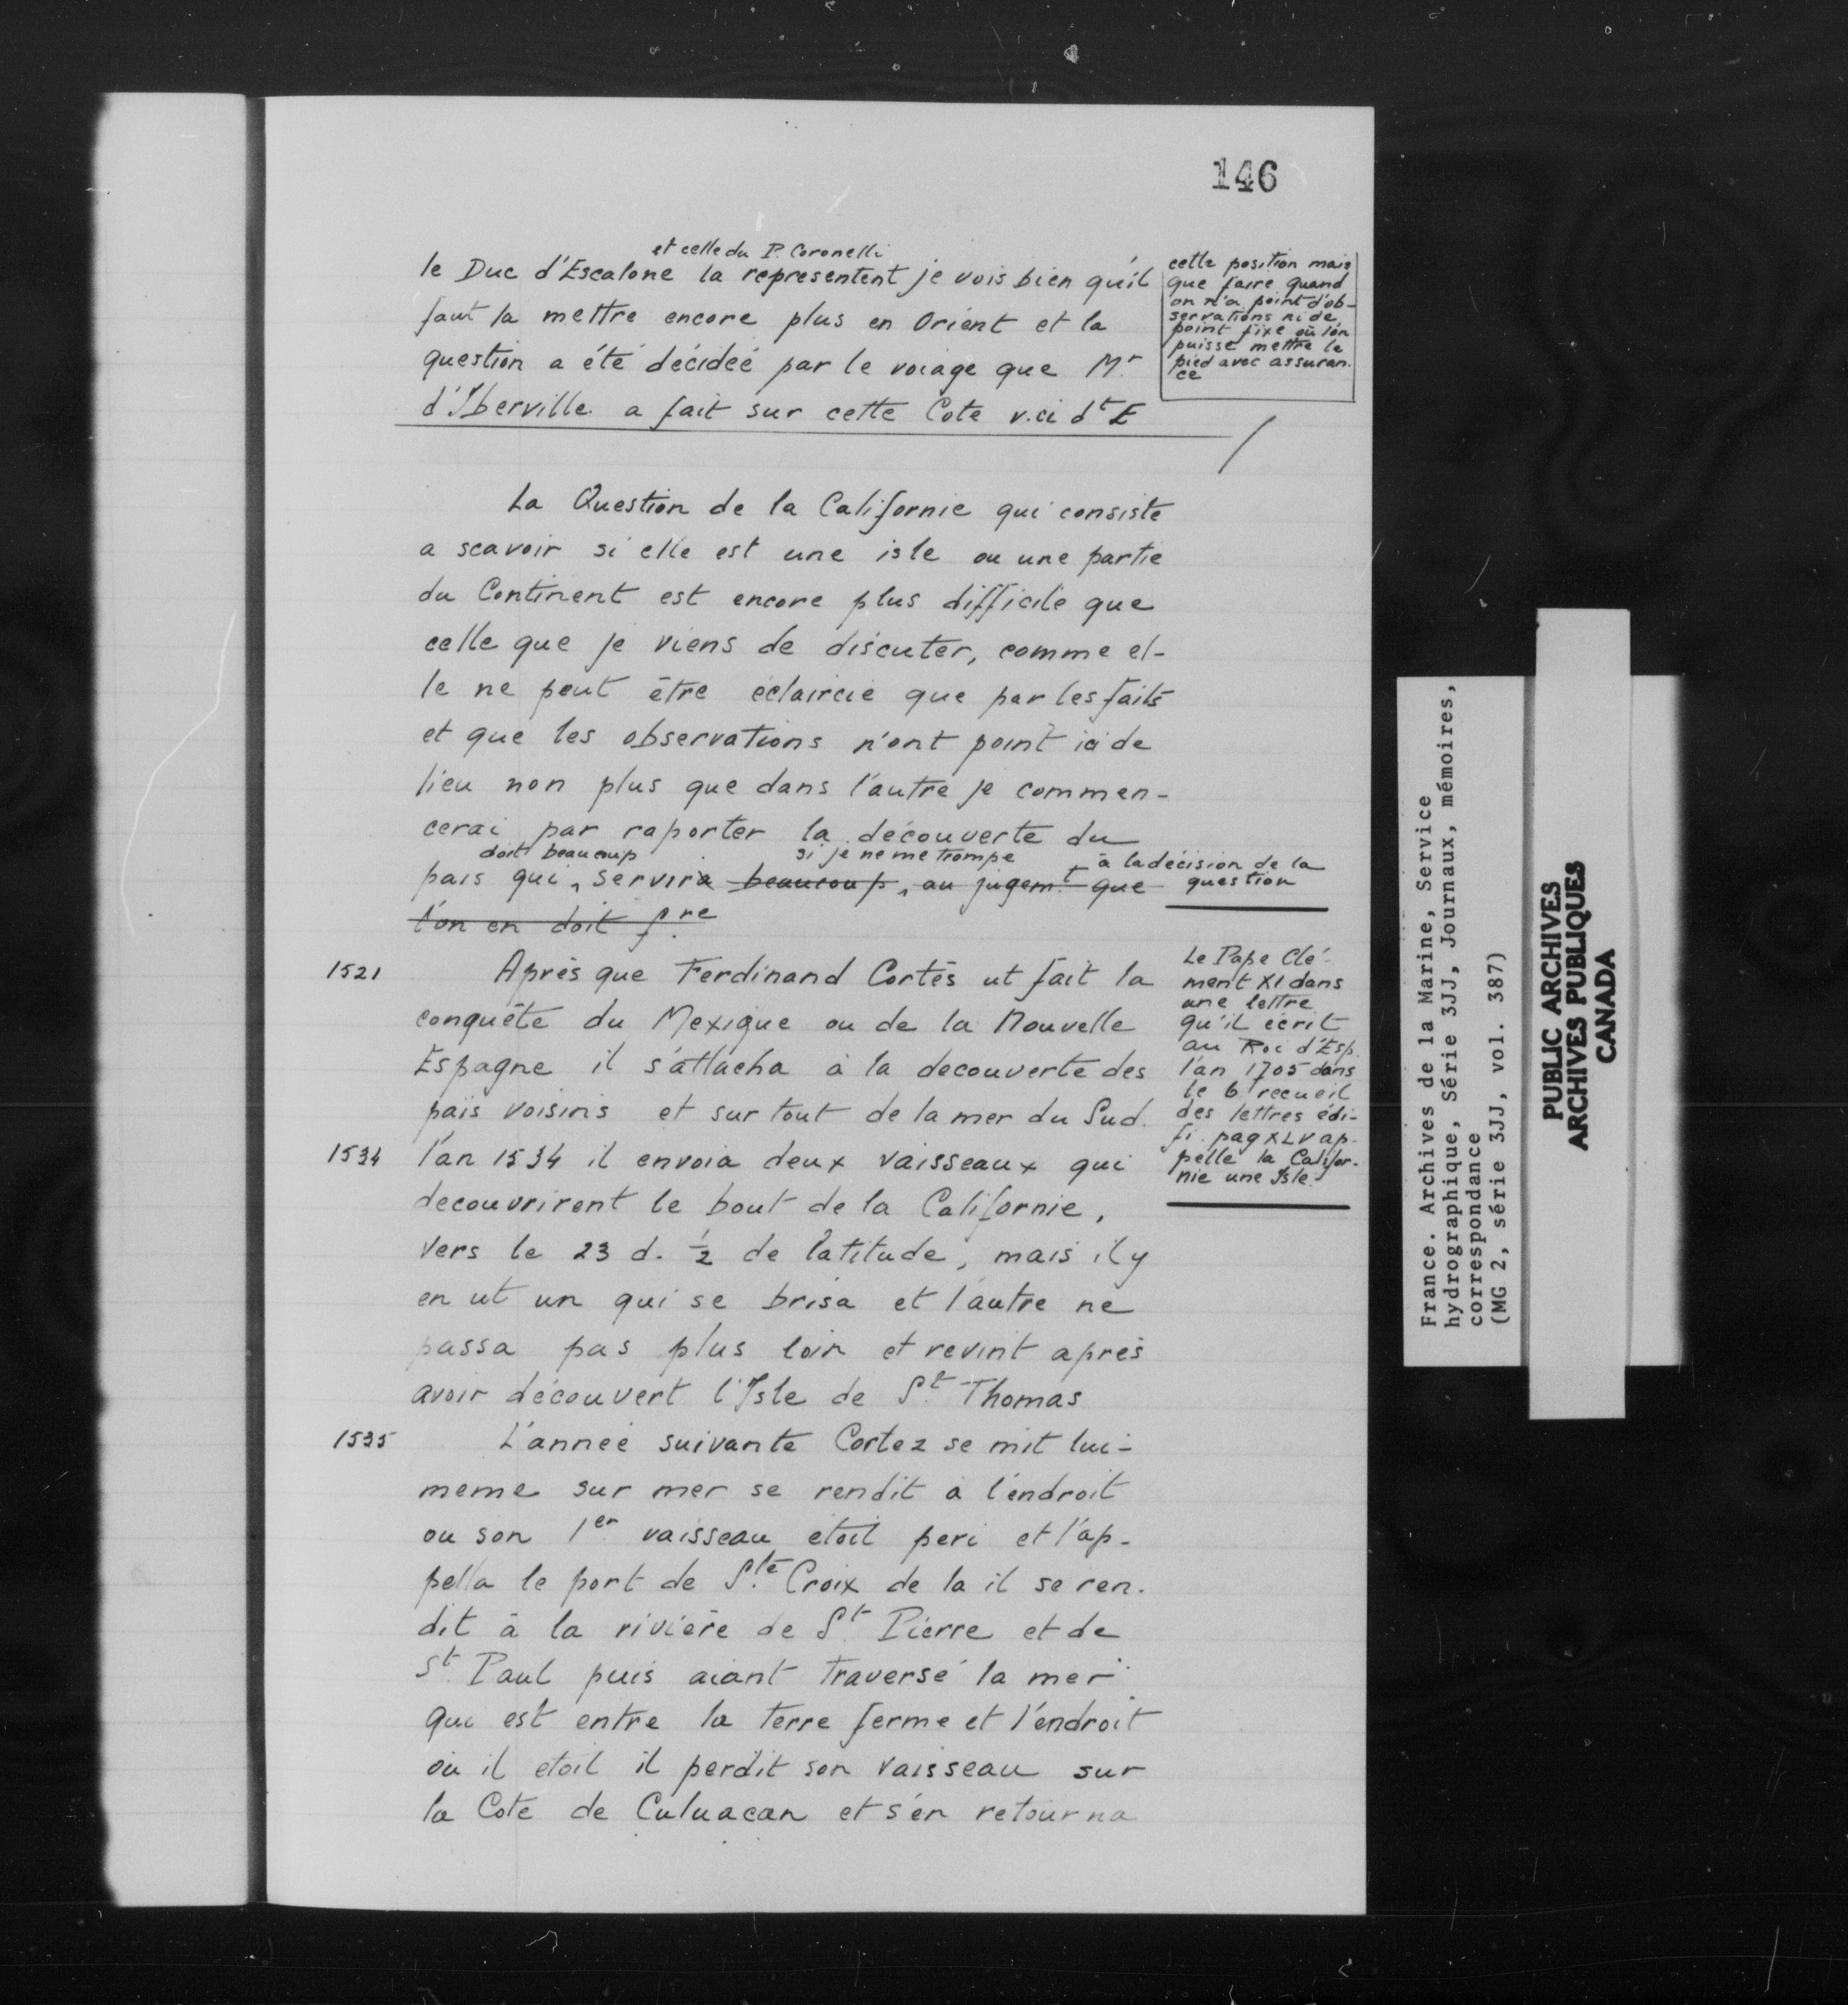 146
et celle du P. Coronelli
le Duc d'Escalone la representent je vois bien qu'il
faut la mettre encore plus en Orient et la
question a été décideé par le voiage que Mr
d'Iberville a fait sur cette Cote v.ci dt E
cette position mais
que faire quand
on n'a point d'ob-
servations ni de
point fixe où l'on
puisse mettre le
pied avec assuran-
ce
La Question de la Californie qui consiste
a scavoir si elle est une isle ou une partie
du Continent est encore plus difficile que
celle que je viens de discuter, comme el-
le ne peut être éclaircie que par les faits
et que les observations n'ont point ici de
lieu non plus que dans l'autre je commen-
cerai par raporter la découverte du
doit beaucoup si je ne me trompe à la décision de la
pais qui, servira beaucoup, au jugemt que question
l'on en doit fre
1521 Après que Ferdinand Cortés ut fait la
conquête du Mexique ou de la Nouvelle
Espagne il s'attacha à la decouverte des
païs voisins et sur tout de la mer du Sud.
1534 l'an 1534 il envoia deux vaisseaux qui
decouvrirent le bout de la Californie,
vers le 23 d. ½ de latitude, mais il y
en ut un qui se brisa et l'autre ne
passa pas plus loin et revint après
avoir découvert l'Isle de St Thomas
Le Pape Clé-
ment XI dans
une lettre
qu'il écrit
au Roi d'Esp.
l'an 1705 dans
le 6 recueil
des lettres édi-
fi. pag XLV ap-
pelle la Califor-
nie une Isle.
1535 L'année suivante Cortez se mit lui-
meme sur mer se rendit a l'endroit
ou son 1er vaisseau étoit peri et l'ap-
pella le port de Ste Croix de la il se ren-
dit à la rivière de St Pierre et de
St Paul puis aiant traversé la mer
qui est entre la terre ferme et l'endroit
où il etoit il perdit son vaisseau sur
la Cote de Culuacan et s'en retourna
France. Archives de la Marine, Service
hydrographique, Série 3JJ, Journaux, mémoires,
correspondance
(MG 2, série 3JJ, vol. 387)
PUBLIC ARCHIVES
ARCHIVES PUBLIQUES
CANADA